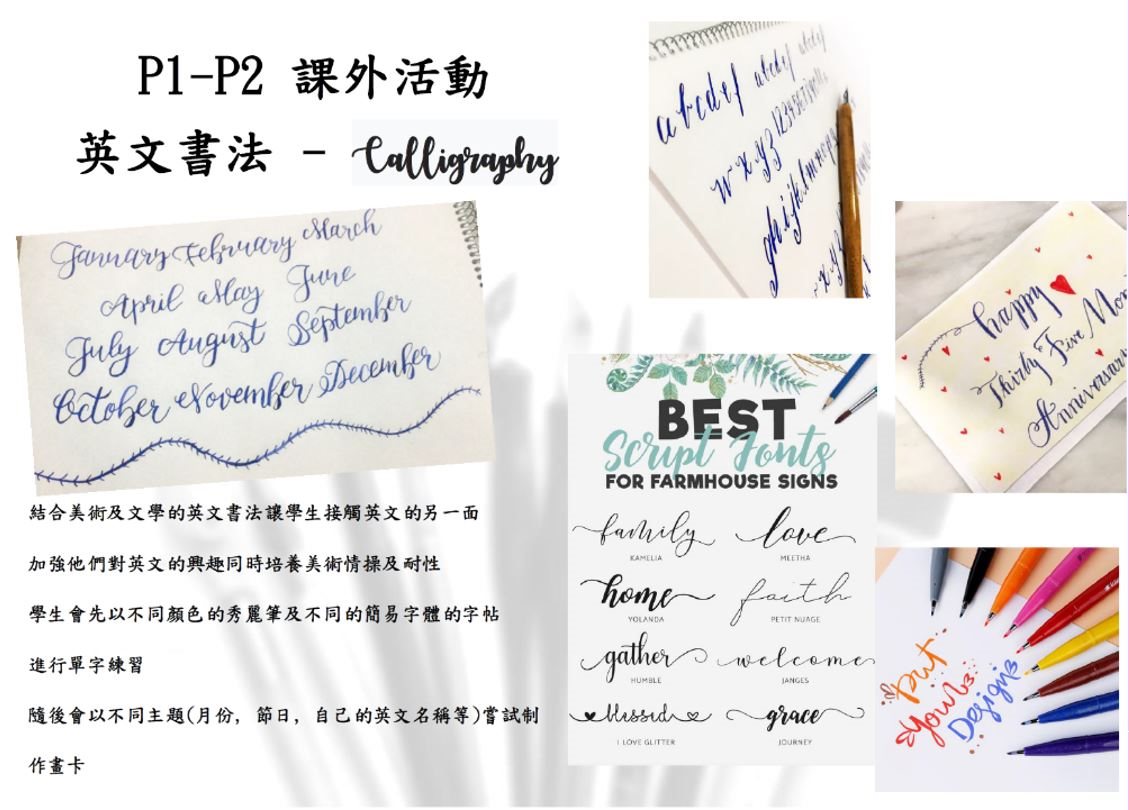 P1-P2 課外活動
英文書法 - Calligraphy
January February March
April May June
July August September
October November December
結合美術及文學的英文書法讓學生接觸英文的另一面
加強他們對英文的興趣同時培養美術情操及耐性
學生會先以不同顏色的秀麗筆及不同的簡易字體的字帖
進行單字練習
隨後會以不同主題(月份, 節日, 自己的英文名稱等)嘗試制
作畫卡
abcdef abcdef abcdef
wxyz 123456789
BEST
Script Fonts
FOR FARMHOUSE SIGNS
family love
KAMELIA MEETHA
home faith
YOLANDA PETIT NUAGE
gather welcome
HUMBLE JANGES
blessed grace
I LOVE GLITTER JOURNEY
happy
Thirty Five Mon
Anniversary
put
your
Designs